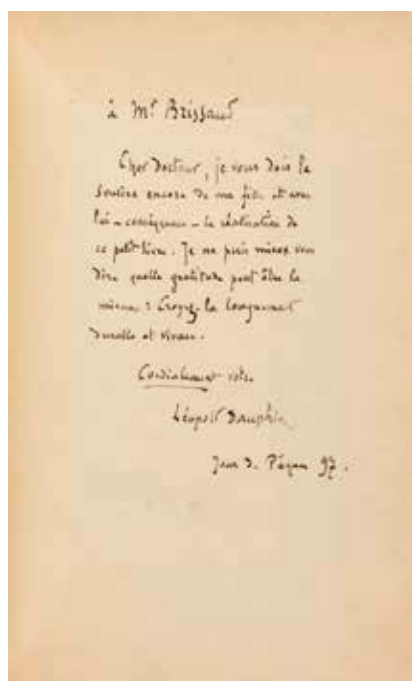 à Mr Brissaud
Cher Docteur, je vous dois le
sourire encore de et avec
lui – conséquence – la réalisation de
ce petit livre. Je ne puis mieux vous
dire quelle gratitude peut être la
mienne : Croyez-la longuement
durable et vivace.
Cordialement votre
Léopold Dauphin
Jour de Pâques 97.